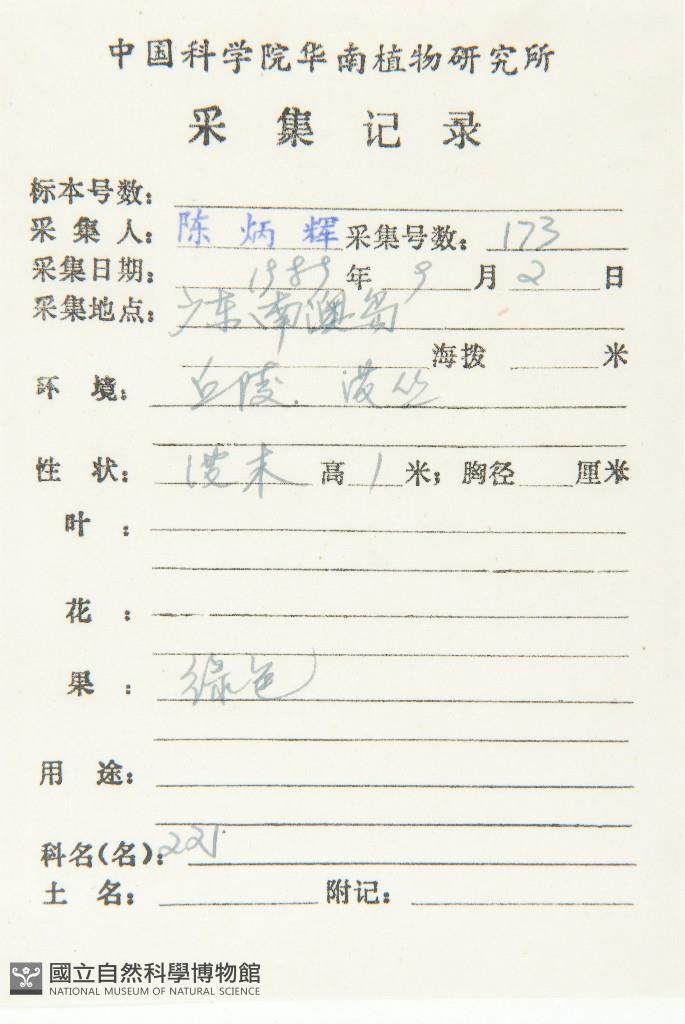 中国科学院华南植物研究所
采集记录
标本号数：
采集人：陈炳辉 采集号数：173
采集日期：1989年9月2日
采集地点：广东南澳岛
海拨 米
环境：丘陵．灌丛
性状：灌木 高1米；胸径 厘米
叶：
花：
果：绿色
用途：
科名(名)：221
土名： 附记：
國立自然科學博物館
NATIONAL MUSEUM OF NATURAL SCIENCE